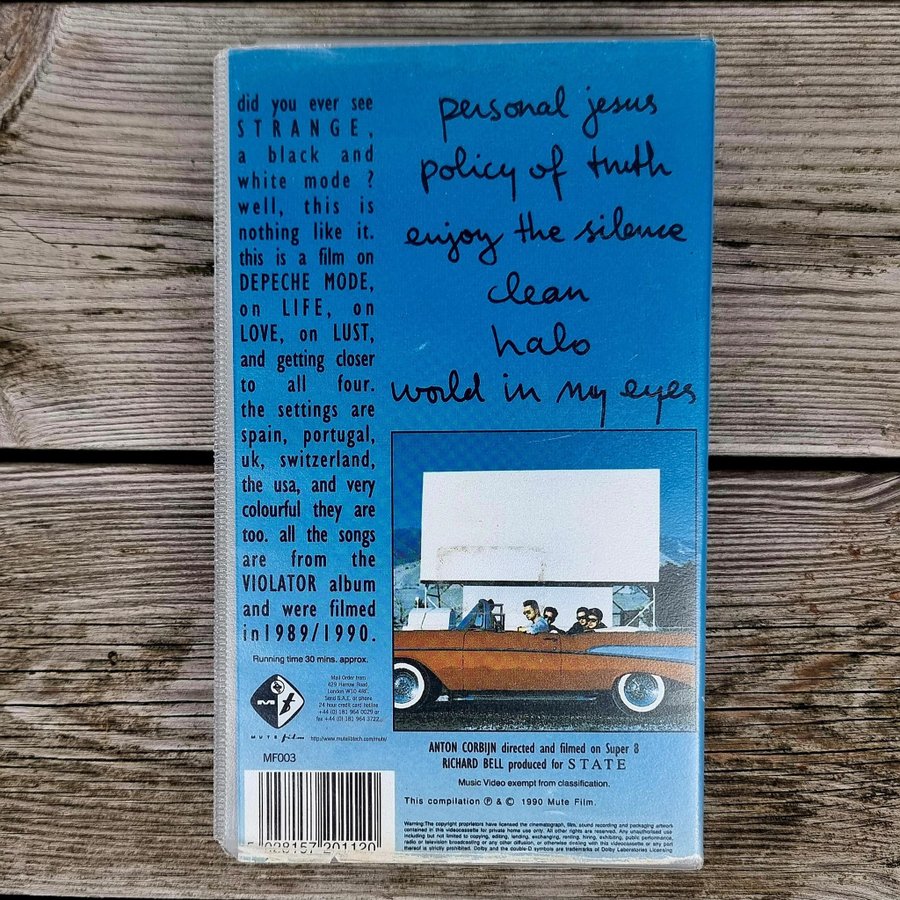 did you ever see
STRANGE,
a black and
white mode ?
well, this is
nothing like it.
this is a film on
DEPECHE MODE,
on LIFE, on
LOVE, on LUST,
and getting closer
to all four.
the settings are
spain, portugal,
uk, switzerland,
the usa, and very
colourful they are
too. all the songs
are from the
VIOLATOR album
and were filmed
in1989/1990.
Running time 30 mins. approx.
Mail Order from
429 Harrow Road
London W10 4RE.
Send S.A.E. or phone
24 hour credit card hotline
+44 (0) 181 964 0029 or
fax +44 (0) 181 964 3722
M f
MUTE film
http://www.mutelibtech.com/mute/
MF003
5 028157 201120
personal jesus
policy of truth
enjoy the silence
clean
halo
world in my eyes
ANTON CORBIJN directed and filmed on Super 8
RICHARD BELL produced for STATE
Music Video exempt from classification.
This compilation ℗ & © 1990 Mute Film.
Warning:The copyright proprietors have licensed the cinematograph, film, sound recording and packaging artwork
contained in this videocassette for private home use only. All other rights are reserved. Any unauthorised use
including but not limited to copying, editing, lending, exchanging, renting, hiring, exhibiting, public performance,
radio or television broadcasting or any other diffusion, or otherwise dealing with this videocassette or any part
thereof is strictly prohibited. Dolby and the double-D symbols are trademarks of Dolby Laboratories Licensing